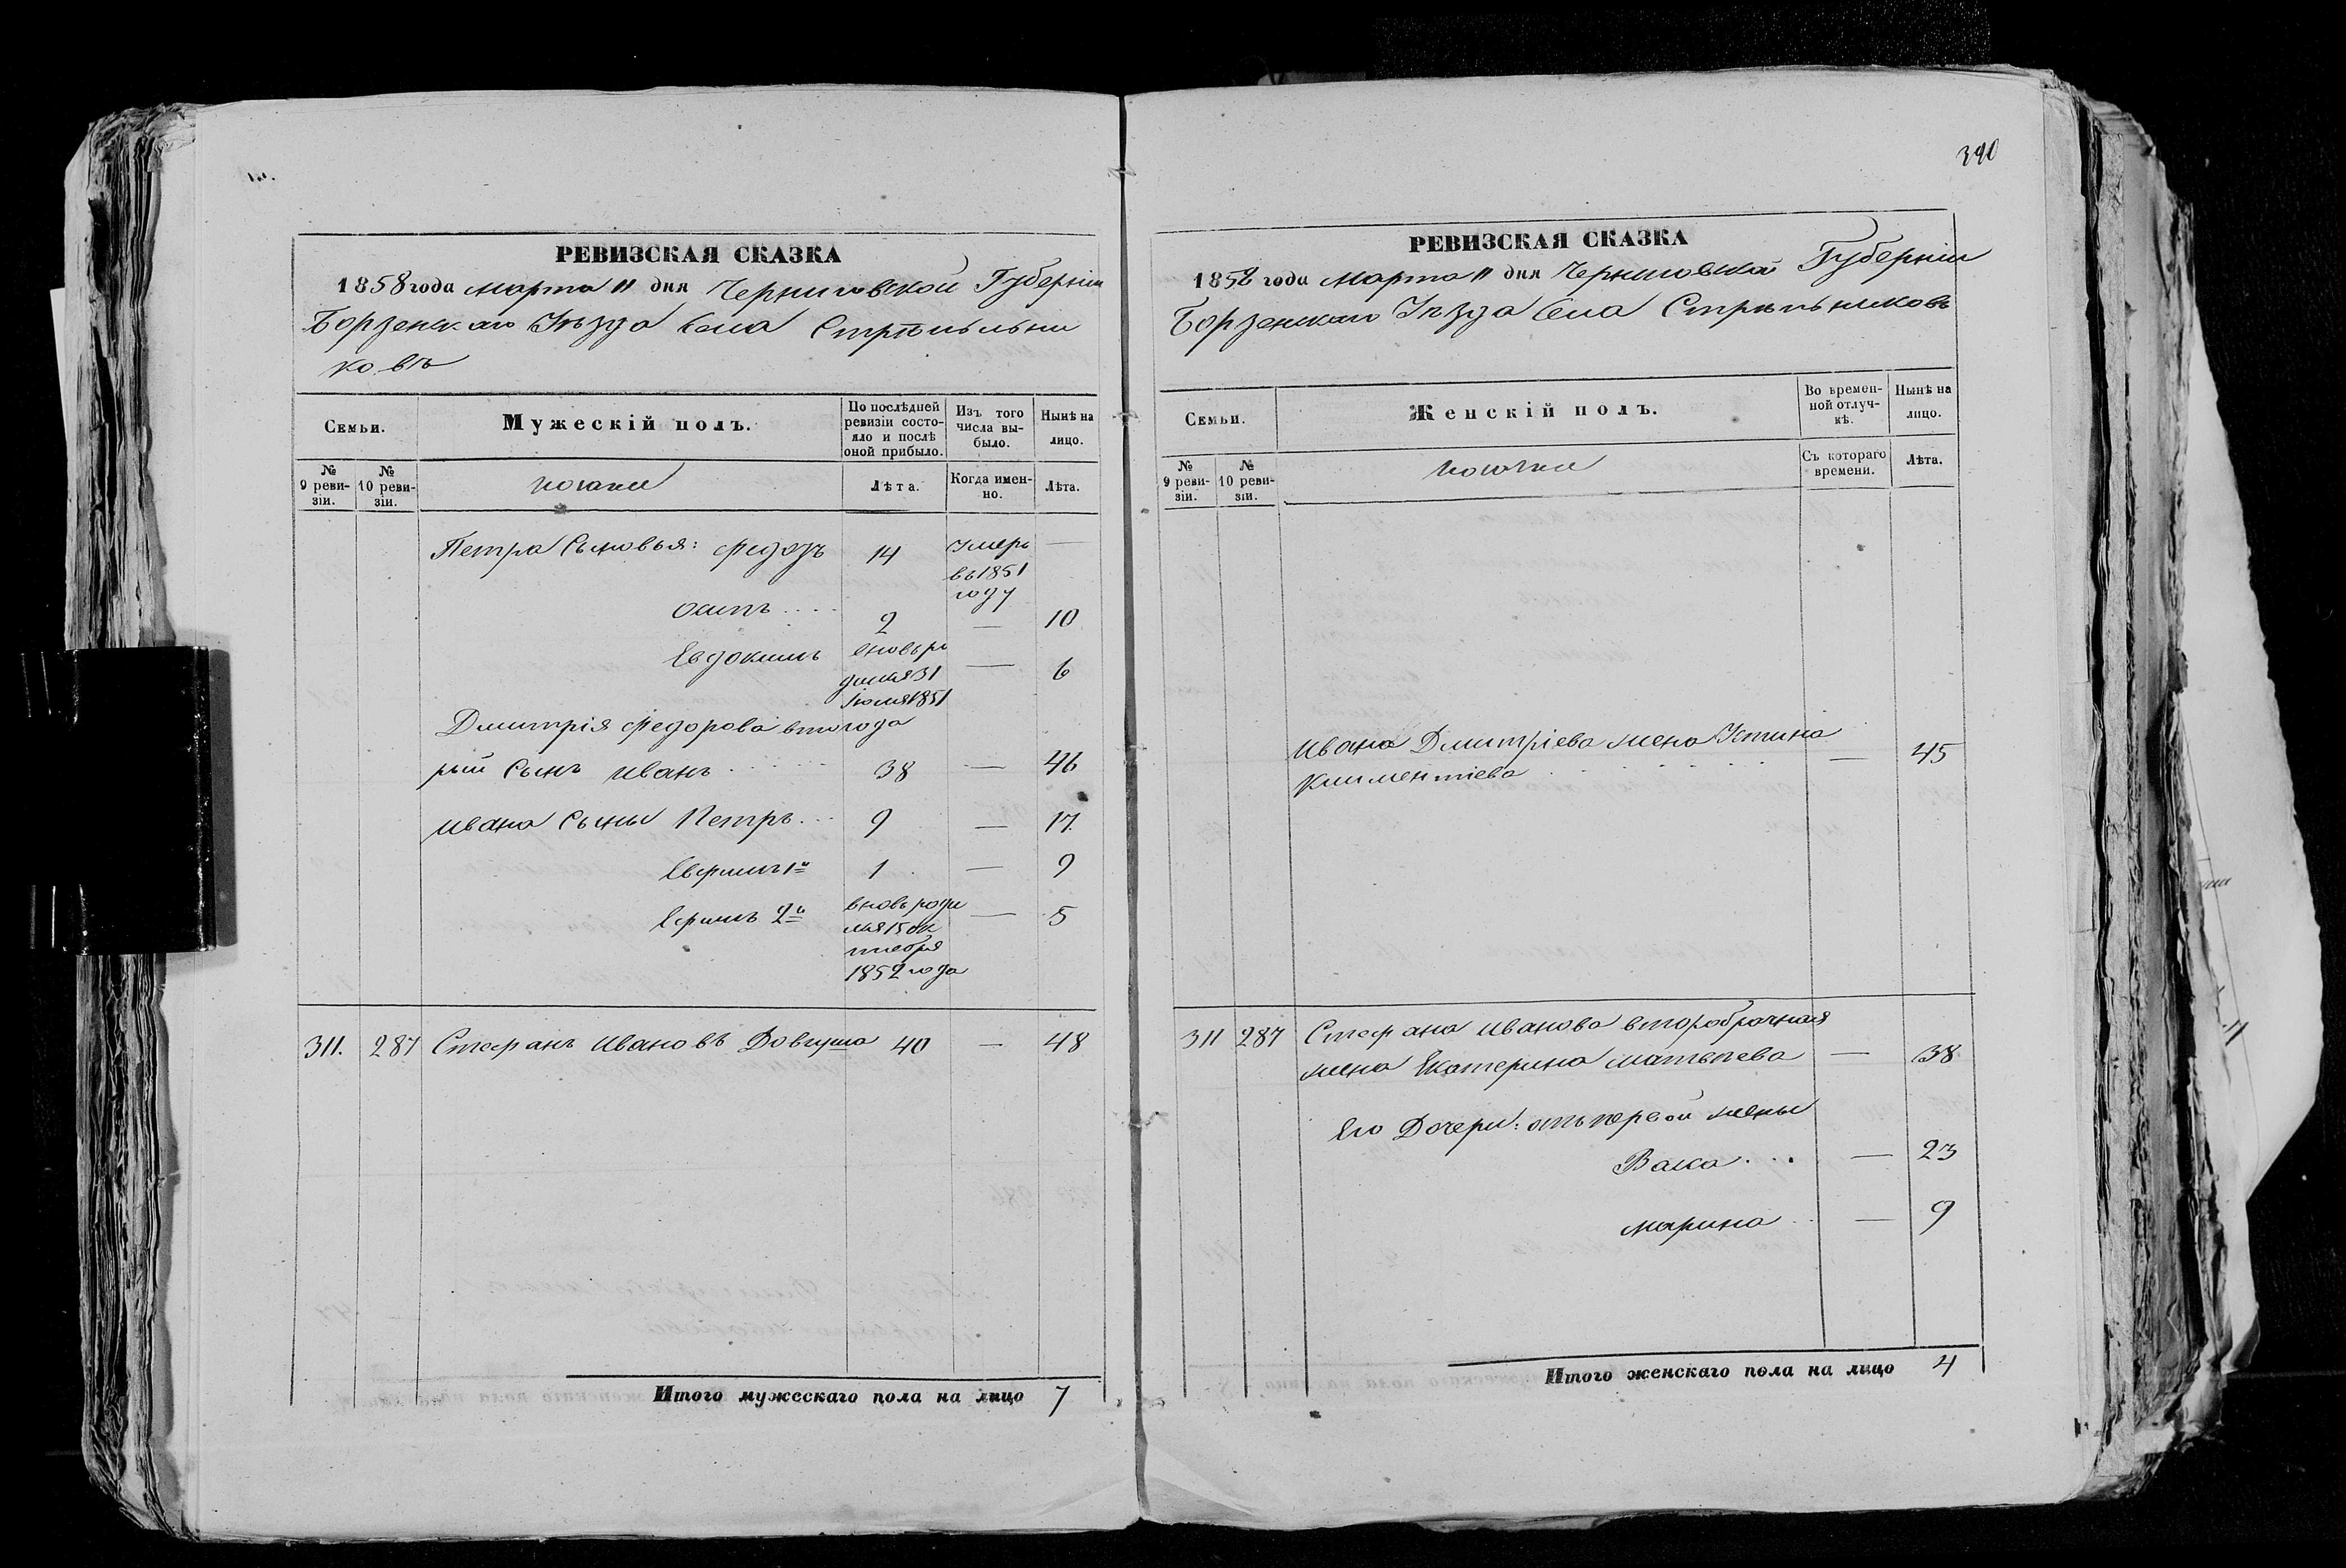 РЕВИЗСКАЯ СКАЗКА
1858 года марта 11 дня Черниговской Губерніи
Борзенскаго Уѣзда Села Стрѣльни
ковъ
Семьи.
Мужескій полъ.
По послѣдней ревизіи состояло и послѣ оной прибыло.
Изъ того числа выбыло.
Ныне на лицо.
№ 9 ревизіи.
№ 10 ревизіи.
козаки
Лѣта.
Когда именно.
Лѣта.
Петра Сыновья: Федоръ 14 умеръ —
въ 1851
году
Осипъ .... 2 — 10
Евдокимъ вновь ро — 6
дился 31
Іюля 1851
Дмитрія Федорова вто года
рый Сынъ Иванъ 38 — 46
Ивана Сыны Петръ... 9 — 17
Ефимъ 1й 1 — 9
Ефимъ 2й вновь роди — 5
лся 15 ок
тября
1852 года
311. 287 Стефанъ Ивановъ Довгуша 40 — 48
Итого мужескаго пола на лицо 7
390
РЕВИЗСКАЯ СКАЗКА
1858 года Марта 11 дня Черниговской Губерніи
Борзенскаго Уѣзда Села Стрѣльниковъ
Семьи.
Женскій полъ.
Во временной отлучкѣ.
Нынѣ на лицо.
№ 9 ревизіи.
№ 10 ревизіи.
козачки
Съ котораго времени.
Лѣта.
Ивана Дмитріева жена Устина
Климентіева — 45
311 287 Стефана Иванова второбрачная
жена Екатерина Матвѣева — 38
Его Дочери: отъ первой жены
Васса ... — 23
Марина — 9
Итого женскаго пола на лицо 4